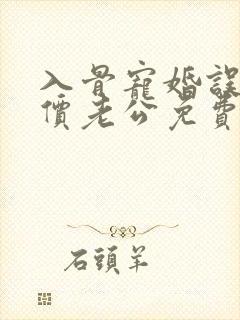 入骨寵婚誤
價老公免費
石頭羊